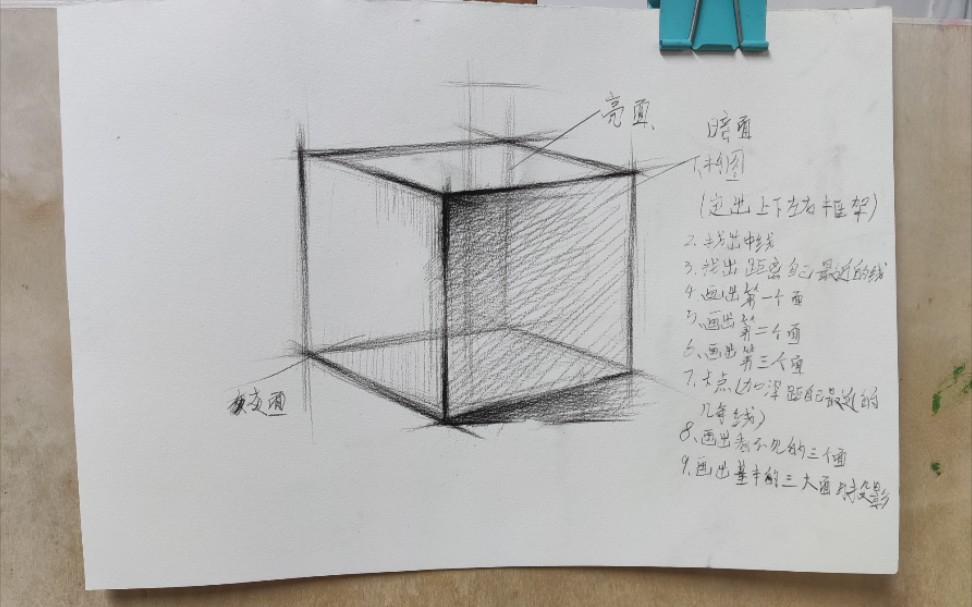 亮面
暗面
1.构图
(定出上下左右框架)
2.找出中线
3.找出距离自己最近的线
4.画出第一个面
5.画出第二个面
6.画出第三个面
7.卡点(加深距自己最近的
几条线)
8.画出看不见的三个面
9.画出基本的三大面与投影
灰面